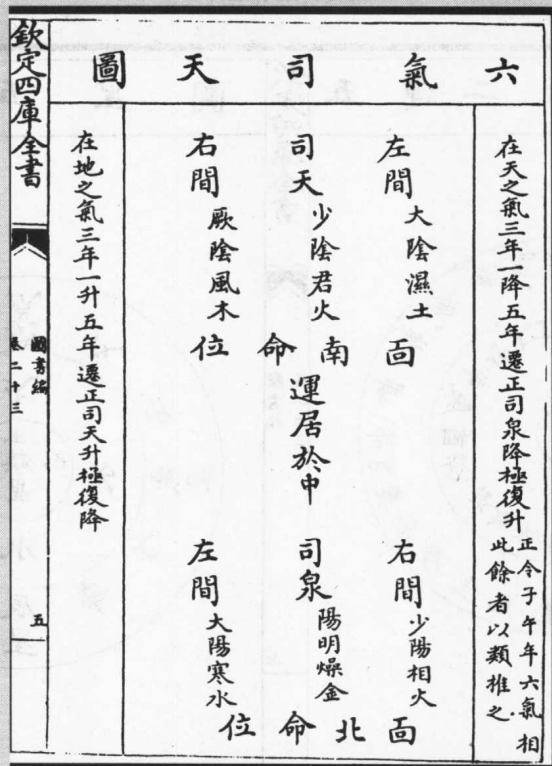 六氣司天圖
在天之氣三年一降五年遷正司泉降極復升
正令子午年六氣相
此餘者以類推之
左間 大陰濕土
司天 少陰君火
右間 厥陰風木
面南命位
運居於中
右間 少陽相火
司泉 陽明燥金
左間 大陽寒水
面北命位
在地之氣三年一升五年遷正司天升極復降
欽定四庫全書
圖書編
卷二十三
五